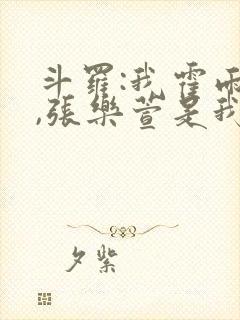 斗罗:我霍雨
,张乐萱是我
夕紫